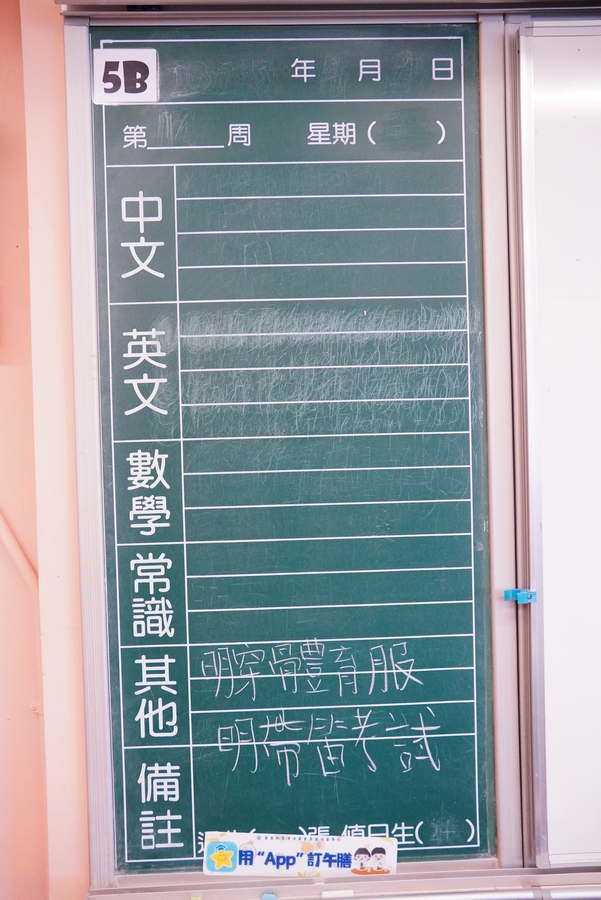 5B 年 月 日
第 周 星期( )
中文
英文
數學
常識
其他
明穿體育服
明帶笛考試
備註
張 值日生( )
用“App”訂午膳